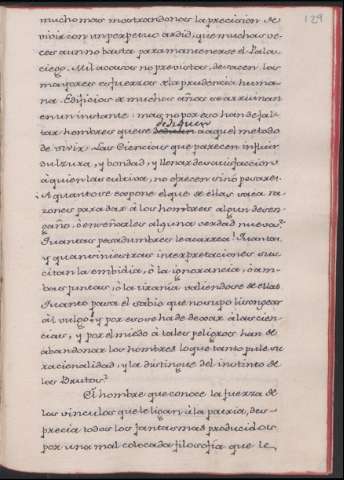 129
mucho mas mostrandonos la precision de
vivir con un perpetuo ardid, que muchas ve-
ces aun no basta para mantenerse el Pala-
ciego. Mil acasos no previstos, desacen los
mayores esfuerzos de la prudencia huma-
na. Edificios de muchos años se arruinan
en un instante: mas no por eso han de fal-
dediquen
tar hombres que se dediquen a aquel metodo
de vivir. Las Ciencias que parecen influir
dulzura, y bondad, y llenar de satisfaccion
à quien las cultiva, no ofrecen sinò pesares.
A quanto se expone el que de ellas saca ra-
zones para dar à los hombres algun desen-
gaño, ò enseñarles alguna verdad nueva?
Quantas pesadumbres le acarrea! Quantas,
y quan siniestras interpretaciones sus-
citan la embidia, ò la ignorancia, ò am-
bas juntas, ò la tirania valiendose de ellas!
Quanto pasa el sabio que no supo lisongear
al vulgo! y por eso se ha de dexar à las cien-
cias, y por el miedo à tales peligros han de
abandonar los hombres lo que tanto pule su
racionalidad, y la distingue del instinto de
los Brutos?
El hombre que conoce la fuerza de
los vinculos que le ligan à la patria, des-
precia todos los fantasmas producidos
por una mal colocada filosofia que le